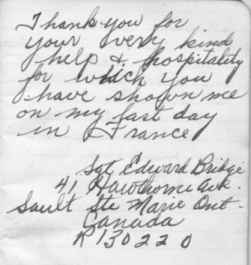 Thank you for
your very kind
help & hospitality
for which you
have shown me
on my last day
in France
Sgt Edward Bridge
41 Hawthorne Ave.
Sault Ste Marie Ont.
Canada
R 130220